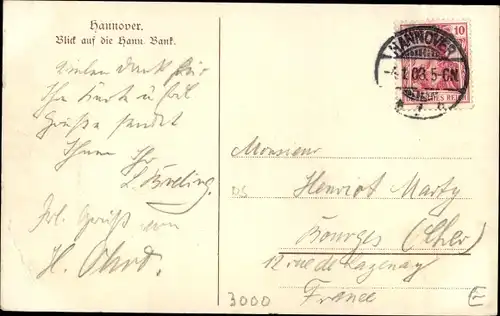 Hannover.
Blick auf die Hann. Bank.
Vielen Dank für
Ihre Karte u. viel
Grüße sendet
Ihnen Ihr
L. Breling.
Frl. Gruß von
H. Ohrd.
HANNOVER
5-6N
10
REICH
Monsieur
DS
Henriot Marty
Bourges (Cher)
12 rue de Lazenay
France
3000
E